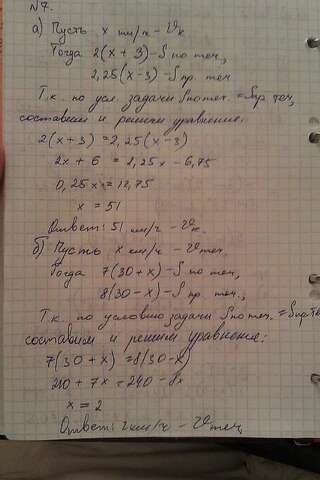 №7.
а) Пусть x км/ч - Vк
Тогда 2(x + 3) - S по теч.,
2,25(x - 3) - S пр. теч
Т.к. по усл. задачи S по теч. = S пр теч,
составим и решим уравнение:
2(x + 3) = 2,25(x - 3)
2x + 6 = 2,25x - 6,75
0,25x = 12,75
x = 51
Ответ: 51 км/ч - Vк.
б) Пусть x км/ч - V теч.
Тогда 7(30 + x) - S по теч.
8(30 - x) - S пр. теч.,
Т.к. по условию задачи S по теч. = S пр. теч
составим и решим уравнение:
7(30 + x) = 8(30 - x)
210 + 7x = 240 - 8x
x = 2
Ответ: 2 км/ч - V теч.